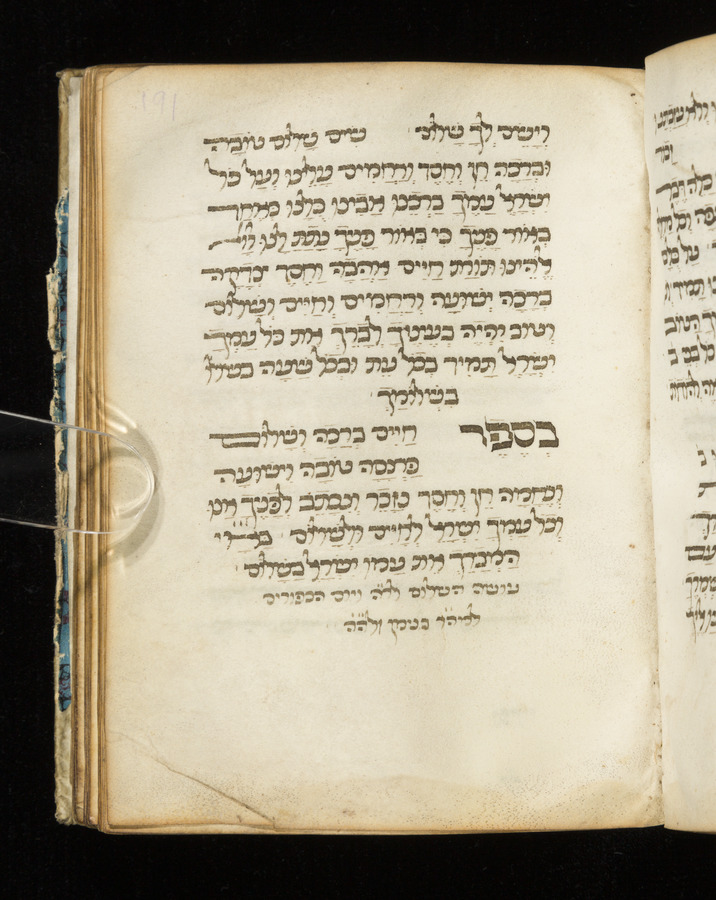 וישם לך שלום שים שלום טובה
וברכה חן וחסד ורחמים עלינו ועל כל
ישראל עמך ברכנו אבינו כלנו כאחד
באור פניך כי באור פניך נתת לנו
אלהינו תורת חיים אהבה וחסד וצדקה
ברכה ישועה ורחמים וחיים ושלום
וטוב יהיה בעיניך לברך את כל עמך
ישראל תמיד בכל עת ובכל שעה
בשלומך
בספר חיים ברכה ושלום
פרנסה טובה וישועה
ונחמה חן וחסד נזכר ונכתב לפניך אנו
וכל עמיך ישראל לחיים ולשלום
המברך את עמו ישראל בשלום
עושה השלום ויום הכפורים